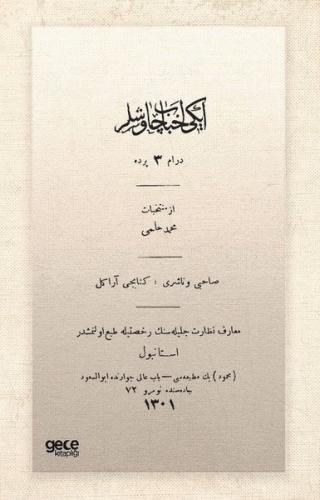 ایکی احباب چاوشلر
درام ۳ پرده
از منتخبات
محمد حلمی
صاحبی و ناشری : کتابجی آراکل
معارف نظارت جلیله‌سنك رخصتیله طبع اولنمشدر
استانبول
( محمود ) بك مطبعه‌سی — باب عالی جوارنده ابوالسعود
جاده‌سنده نومرو ۷۲
۱۳۰۱
gece
kitaplığı